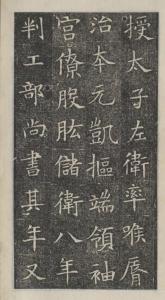 授太子左衛率喉脣
治夲元凱樞端領袖
宮僚股肱儲衛八年
判工部尚書其年又